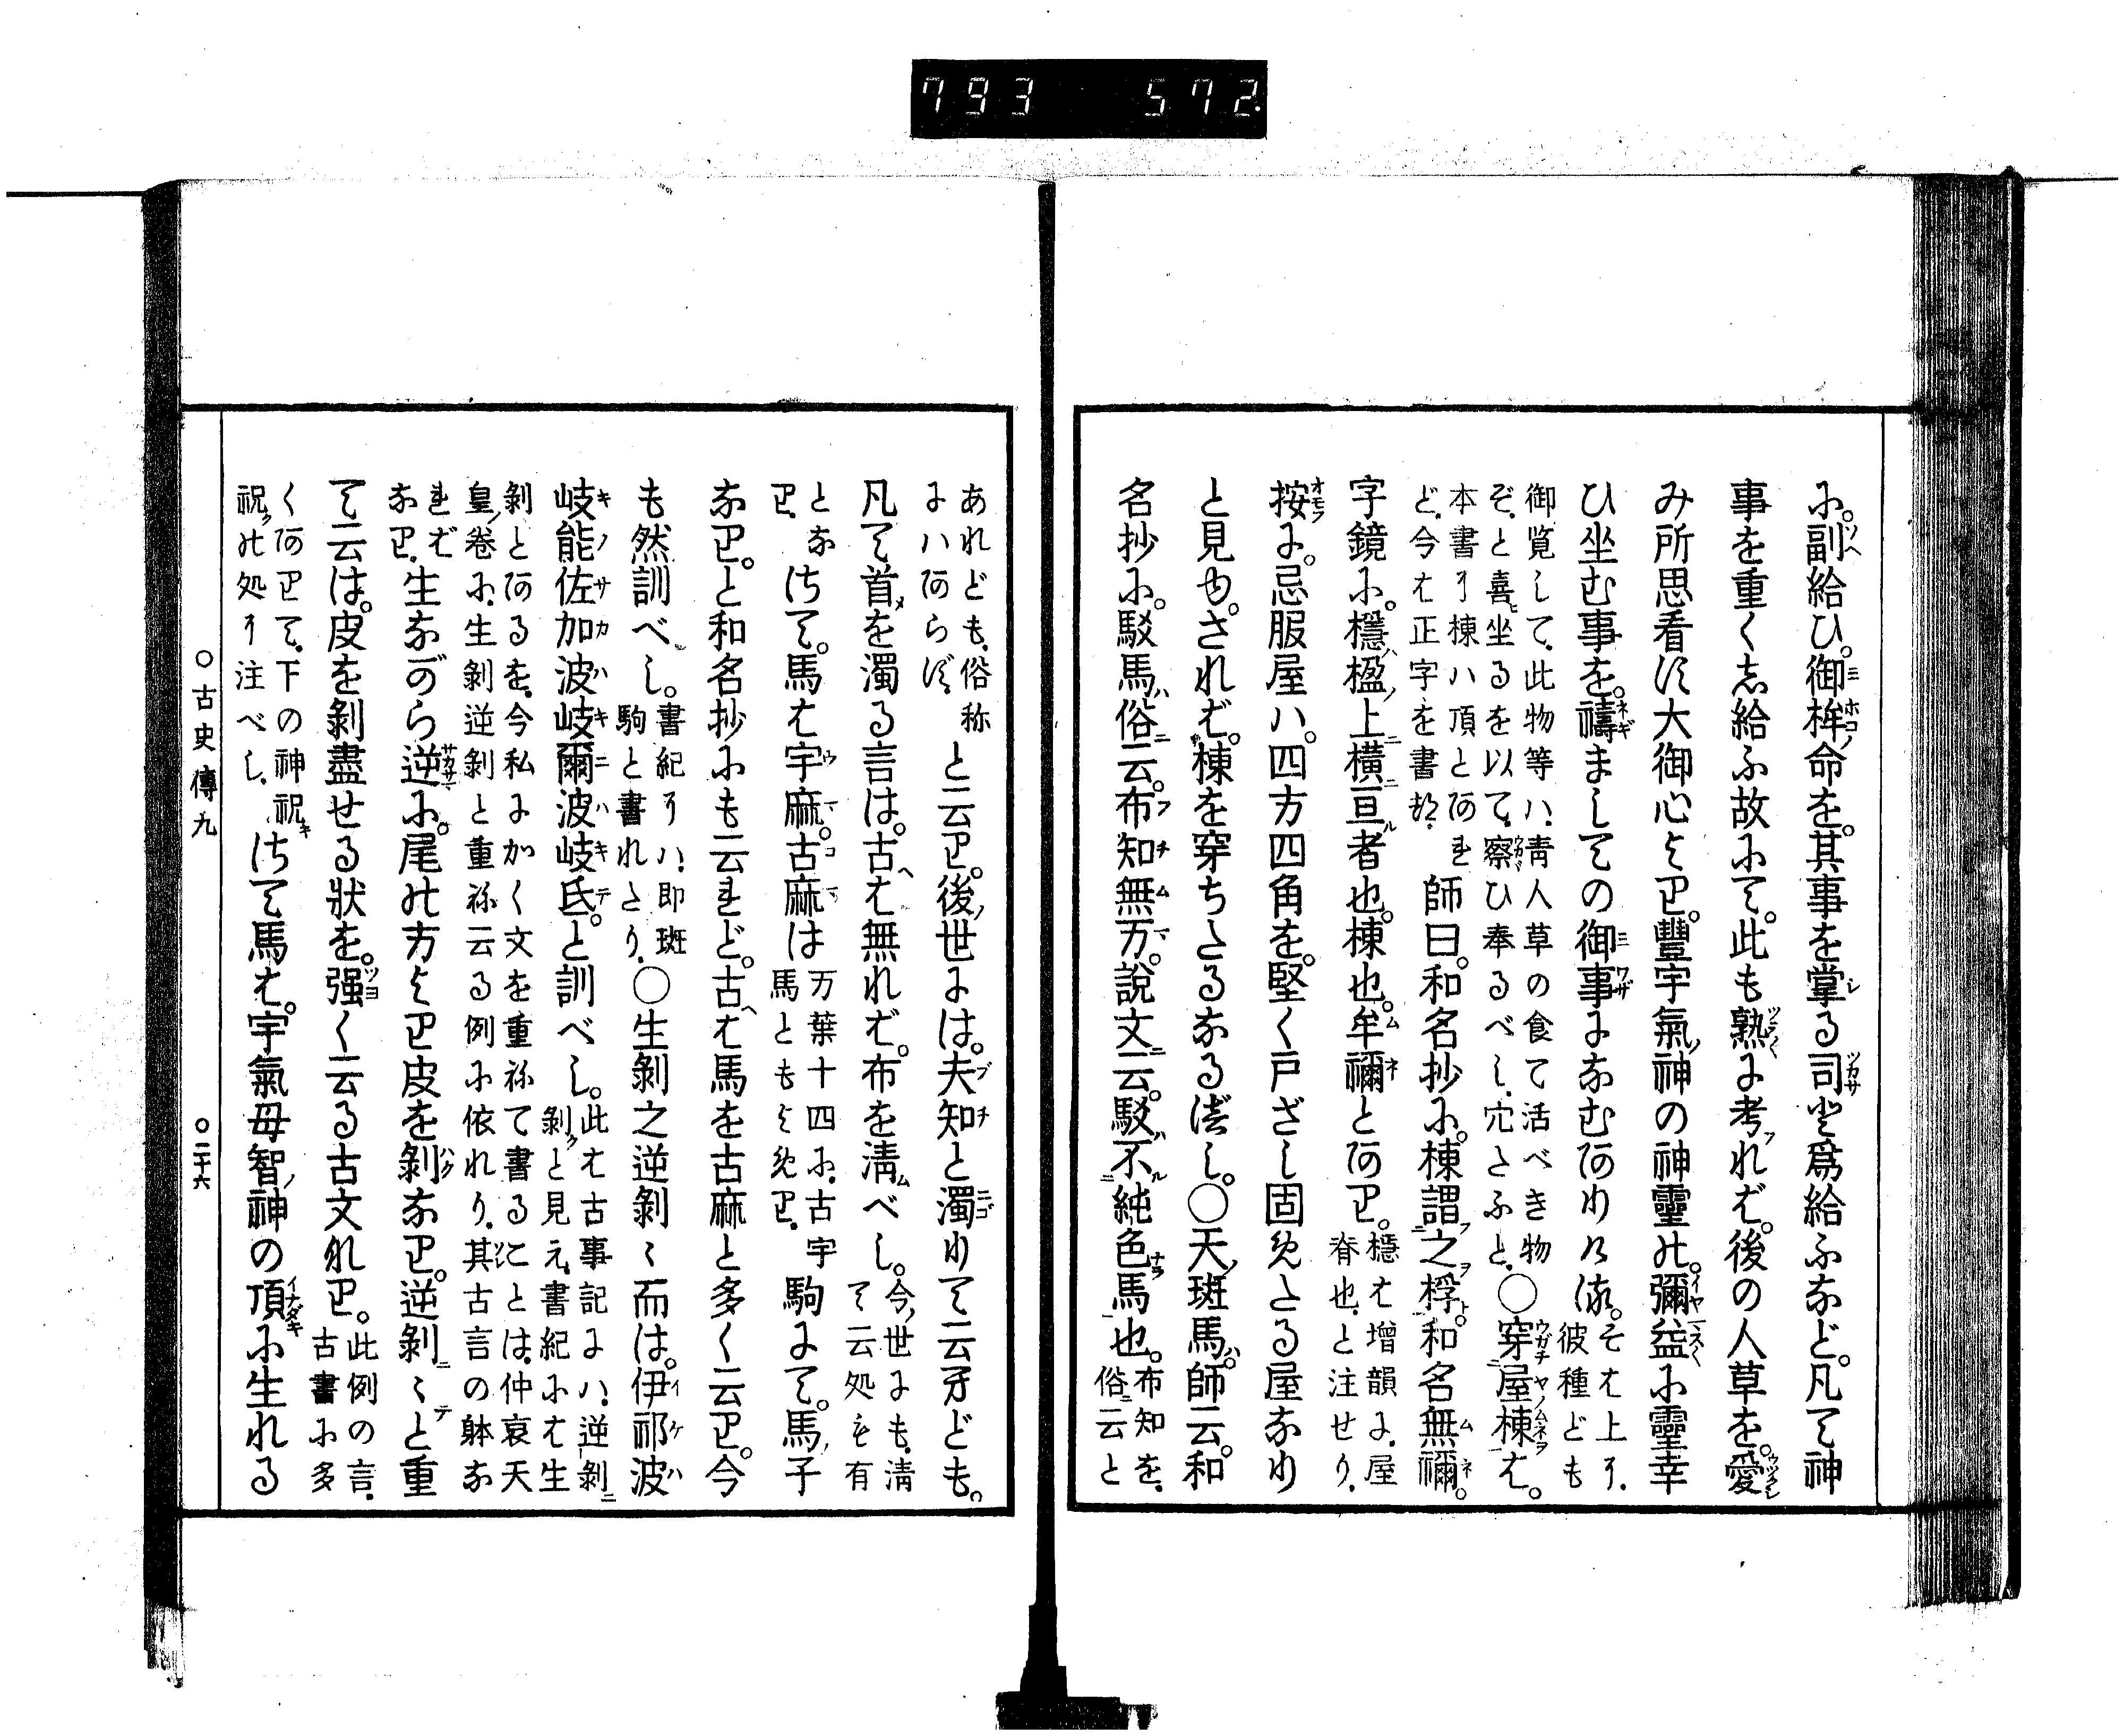 793 572
に。副給ひ。御桙命を。其事を掌る司と爲給ふなど。凡て神
事を重く志給ふ故にて。此も熟に考れば。後の人草を。愛
み所思看す大御心より。豐宇氣神の神靈の。彌益に靈幸
ひ坐む事を。禱ましての御事になむ有りける。そは上に。彼種ども
御覧して、此物等ハ、靑人草の食て活べき物
ぞ、と喜坐るを以て、察ひ奉るべし、穴さふと、〇穿屋棟は。
本書に棟ハ頂とあれ
ど、今は正字を書り、師曰。和名抄に。棟謂之桴。和名無禰。
字鏡に。檼楹上橫亘者也。棟也。牟禰とあり。檼は增韻に、屋
脊也、と注せり、
按に。忌服屋ハ。四方四角を。堅く戸ざし固めたる屋なり
と見ゆ。されば。棟を穿ちたるなるべし。〇天斑馬。師云。和
名抄に。駁馬俗云。布知無万。說文云。駁不純色馬也。布知を、
俗云と
あれども、俗称
にハあらず、と云り。後世には。夫知と濁りて云へども。
凡て首を濁る言は。古は無れば。布を淸べし。今世にも、淸
て云処も有
とな
り、さて。馬は宇麻。古麻は万葉十四に、古宇
馬ともよめり、駒にて。馬子
なり。と和名抄にも云れど。古は馬を古麻と多く云り。今
も然訓べし。書紀にハ、即斑
駒と書れたり、〇生剝之逆剝〻而は。伊祁波
岐能佐加波岐爾波岐氐。と訓べし。此は古事記にハ、逆剝
剝と見え、書紀には生
剝とあるを、今私にかく文を重ねて書ることは、仲哀天
皇卷に、生剝逆剝と重祢云る例に依れり、其古言の躰な
れば
なり、生ながら逆に。尾の方より皮を剝なり。逆剝〻と重
て云は。皮を剝盡せる狀を。强く云る古文なり。此例の言、
古書に多
く有りて、下の神祝
祝の処に注べし、さて馬は。宇氣母智神の頂に生れる
〇古史傳九
〇二十六